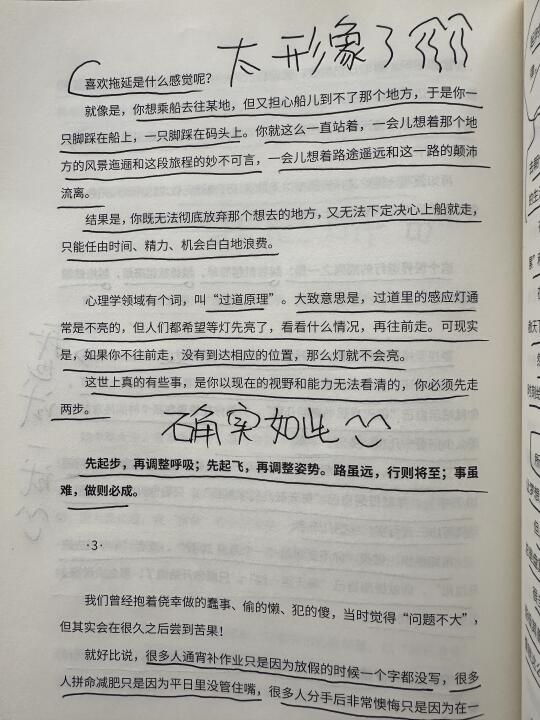 太形象了
喜欢拖延是什么感觉呢？
就像是，你想乘船去往某地，但又担心船儿到不了那个地方，于是你一
只脚踩在船上，一只脚踩在码头上。你就这么一直站着，一会儿想着那个地
方的风景迤逦和这段旅程的妙不可言，一会儿想着路途遥远和这一路的颠沛
流离。
结果是，你既无法彻底放弃那个想去的地方，又无法下定决心上船就走，
只能任由时间、精力、机会白白地浪费。
心理学领域有个词，叫“过道原理”。大致意思是，过道里的感应灯通
常是不亮的，但人们都希望等灯先亮了，看看什么情况，再往前走。可现实
是，如果你不往前走，没有到达相应的位置，那么灯就不会亮。
这世上真的有些事，是你以现在的视野和能力无法看清的，你必须先走
两步。
确实如此
先起步，再调整呼吸；先起飞，再调整姿势。路虽远，行则将至；事虽
难，做则必成。
·3·
我们曾经抱着侥幸做的蠢事、偷的懒、犯的傻，当时觉得“问题不大”，
但其实会在很久之后尝到苦果！
就好比说，很多人通宵补作业只是因为放假的时候一个字都没写，很多
人拼命减肥只是因为平日里没管住嘴，很多人分手后非常懊悔只是因为在一